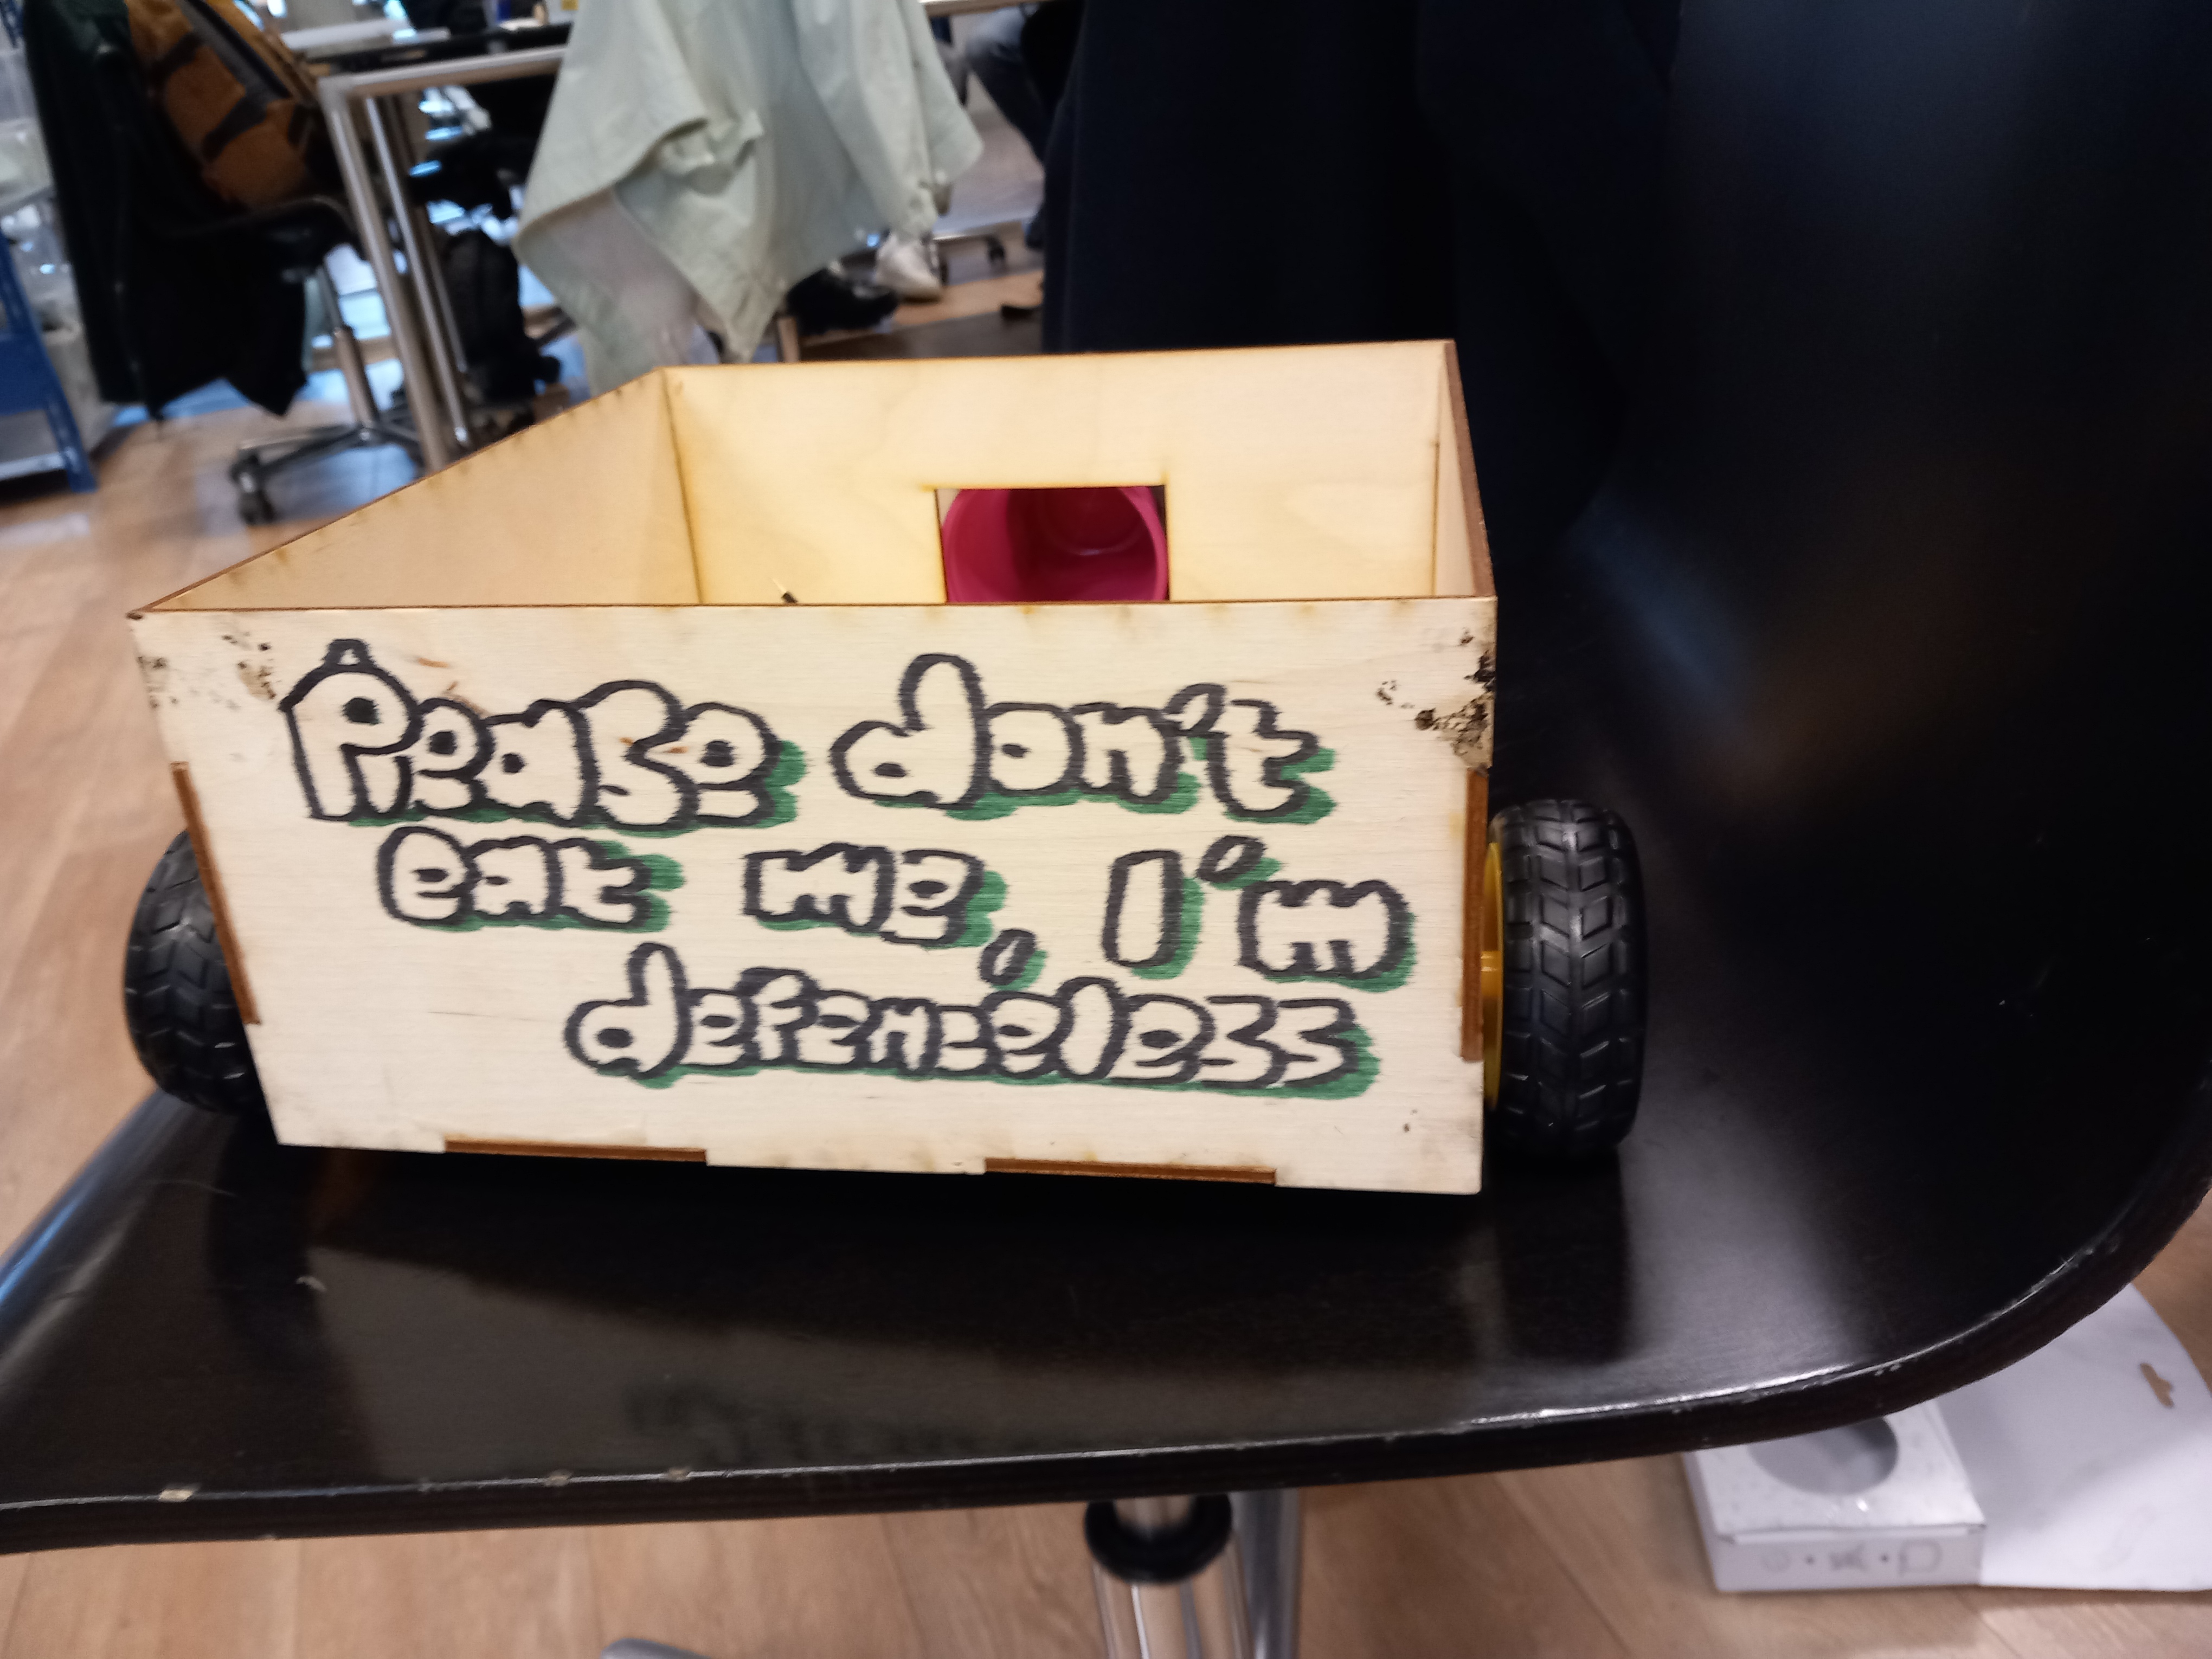 Please don't
eat me, I'm
defenceless